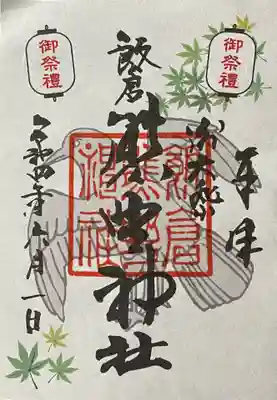 御祭禮
御祭禮
奉拝
飯倉
熊野神社
令和四年六月一日
飯倉
熊野
神社